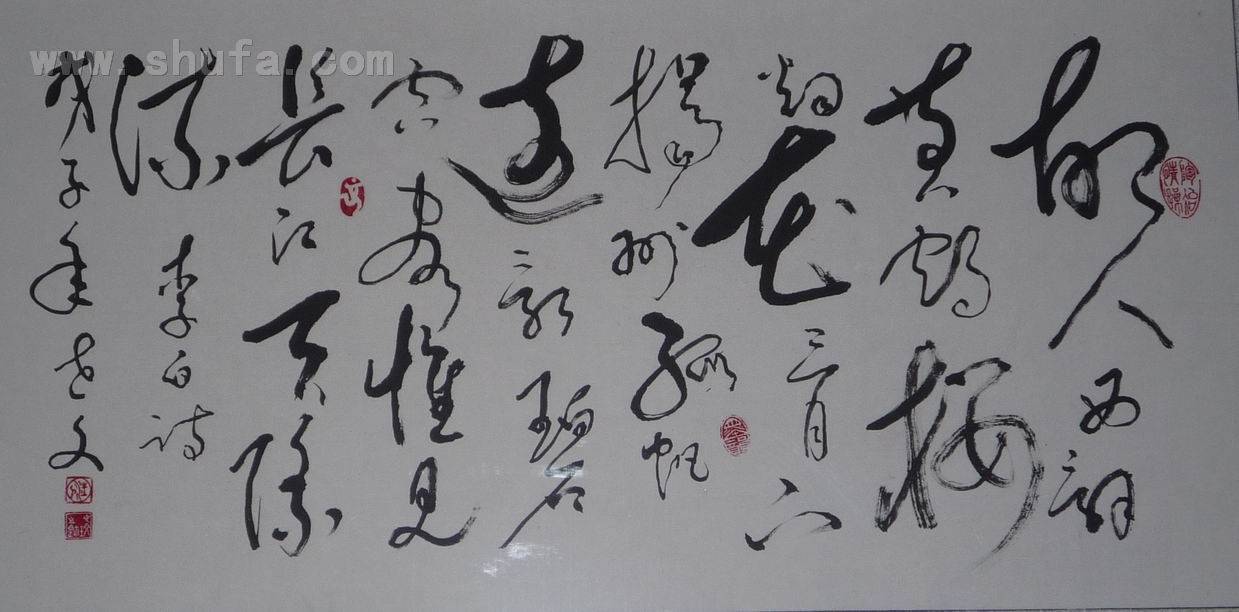 故人西辭
黄鹤楼
烟花三月下
揚州孤帆
遠影碧
空尽惟見
長江天際
流 李白诗
戊子年 文
www.shufa.com